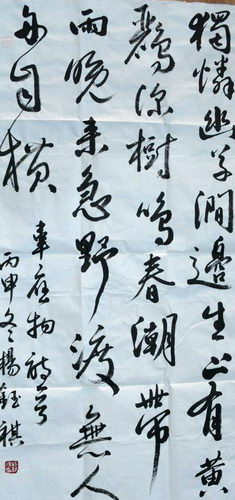 獨憐幽草澗邊生上有黃
鸝深樹鳴春潮帶
雨晚来急野渡無人
舟自橫
韋應物詩
丙申冬楊鈺祺